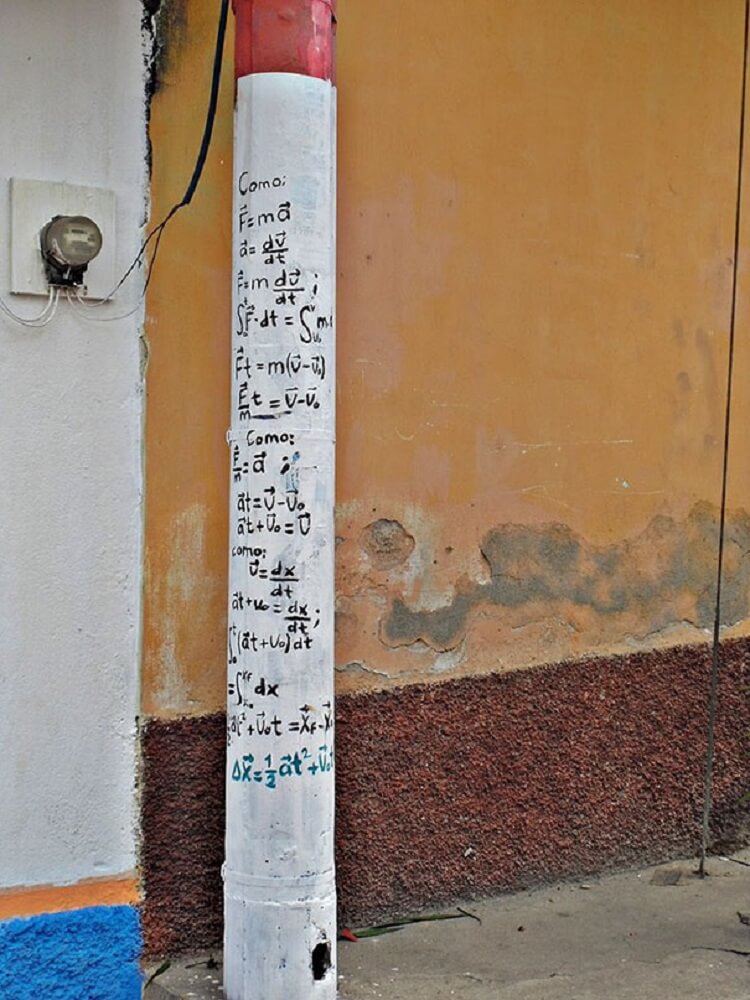 Como:
F⃗=ma⃗
a⃗=dv⃗/dt
F⃗=m dv⃗/dt ;
∫F⃗·dt = ∫m
F⃗t =m(v⃗-v⃗₀)
F⃗/m t =v⃗-v⃗₀
Como:
F⃗/m=a⃗ ;
a⃗t=v⃗-v⃗₀
a⃗t+v⃗₀=v⃗
como:
v⃗=dx/dt
a⃗t+v₀=dx/dt;
∫₀ᵗ(a⃗t+v₀)dt
=∫dx
at²+v⃗₀t =x⃗F-x⃗
Δx⃗=1/2 a⃗t²+v⃗₀t